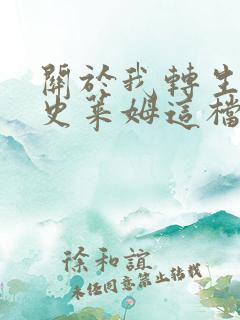 關於我轉生
史萊姆這檔
徐和誼
未经同意禁止转载